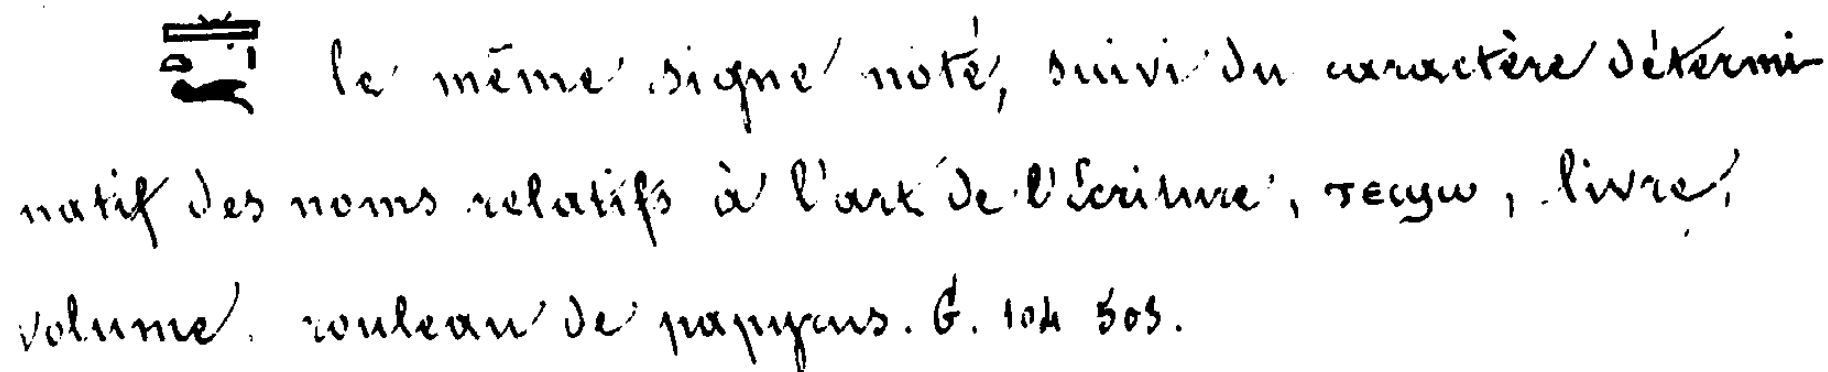 le même signe noté, suivi du caractère détermi-
natif des noms relatifs à l'art de l'Écriture, ⲧⲉϣⲱ, livre,
volume, rouleau de papyrus. G. 104 505.